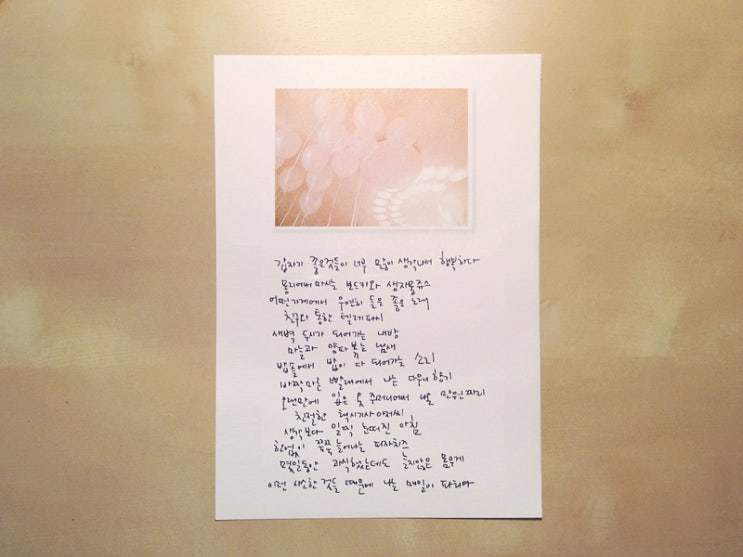 갑자기 좋은것들이 너무 많이 생각나서 행복하다
몰리에서 마시는 보드카와 생자몽쥬스
어떤가게에서 우연히 들은 좋은 노래
친구와 통한 텔레파시
새벽 두시가 되어가는 내방
마늘과 양파 볶는 냄새
밥솥에서 밥이 다 되어가는 소리
바짝마른 빨래에서 나는 다우니향기
오랜만에 입은 옷 주머니에서 나온 만원짜리
친절한 택시기사 아저씨
생각보다 일찍 눈떠진 아침
한없이 쭉쭉 늘어나는 피자치즈
몇일동안 과식했는데도 늘지않은 몸무게
이런 사소한 것들 때문에 나는 매일이 파티야